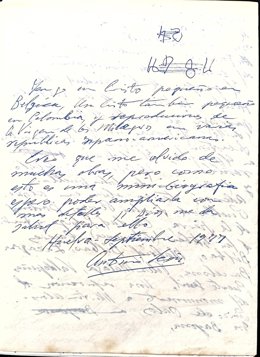 Tengo un Cristo pequeño en
Belgica, un Cristo tambien pequeño
en Colombia y reproducciones de
la Virgen de los Milagros en varias
republicas hispanoamericanas.
Creo que me olvido de
muchas obras, pero como
esto es una mini-biografia
espero poder ampliarla con
mas detalles si Dios me da
salud para ello
Huelva - Septiembre 1977
Antonio León